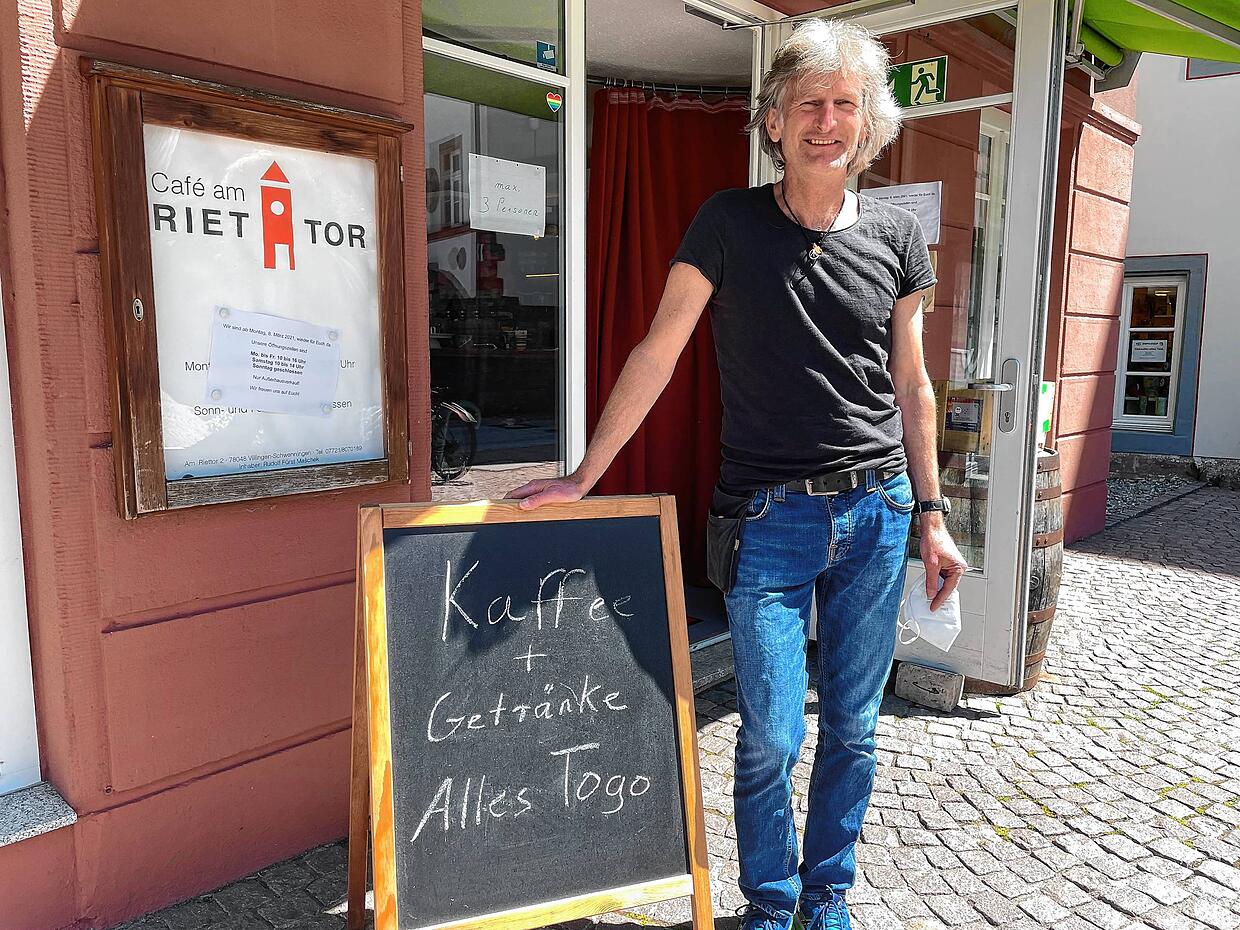 Café am
RIET TOR
Wir sind ab Montag, 8. März 2021, wieder für Euch da.
Unsere Öffnungszeiten sind
Mo. bis Fr. 10 bis 16 Uhr
Samstag 10 bis 14 Uhr
Sonntag geschlossen
Nur Außerhausverkauf!
Wir freuen uns auf Euch!
Uhr
Sonn- und
Am Riettor 2 - 78048 Villingen-Schwenningen - Tel. 07721/8070189
Inhaber: Rudolf Fürst Maschek
max.
3 Personen
Kaffee
+
Getränke
Alles Togo